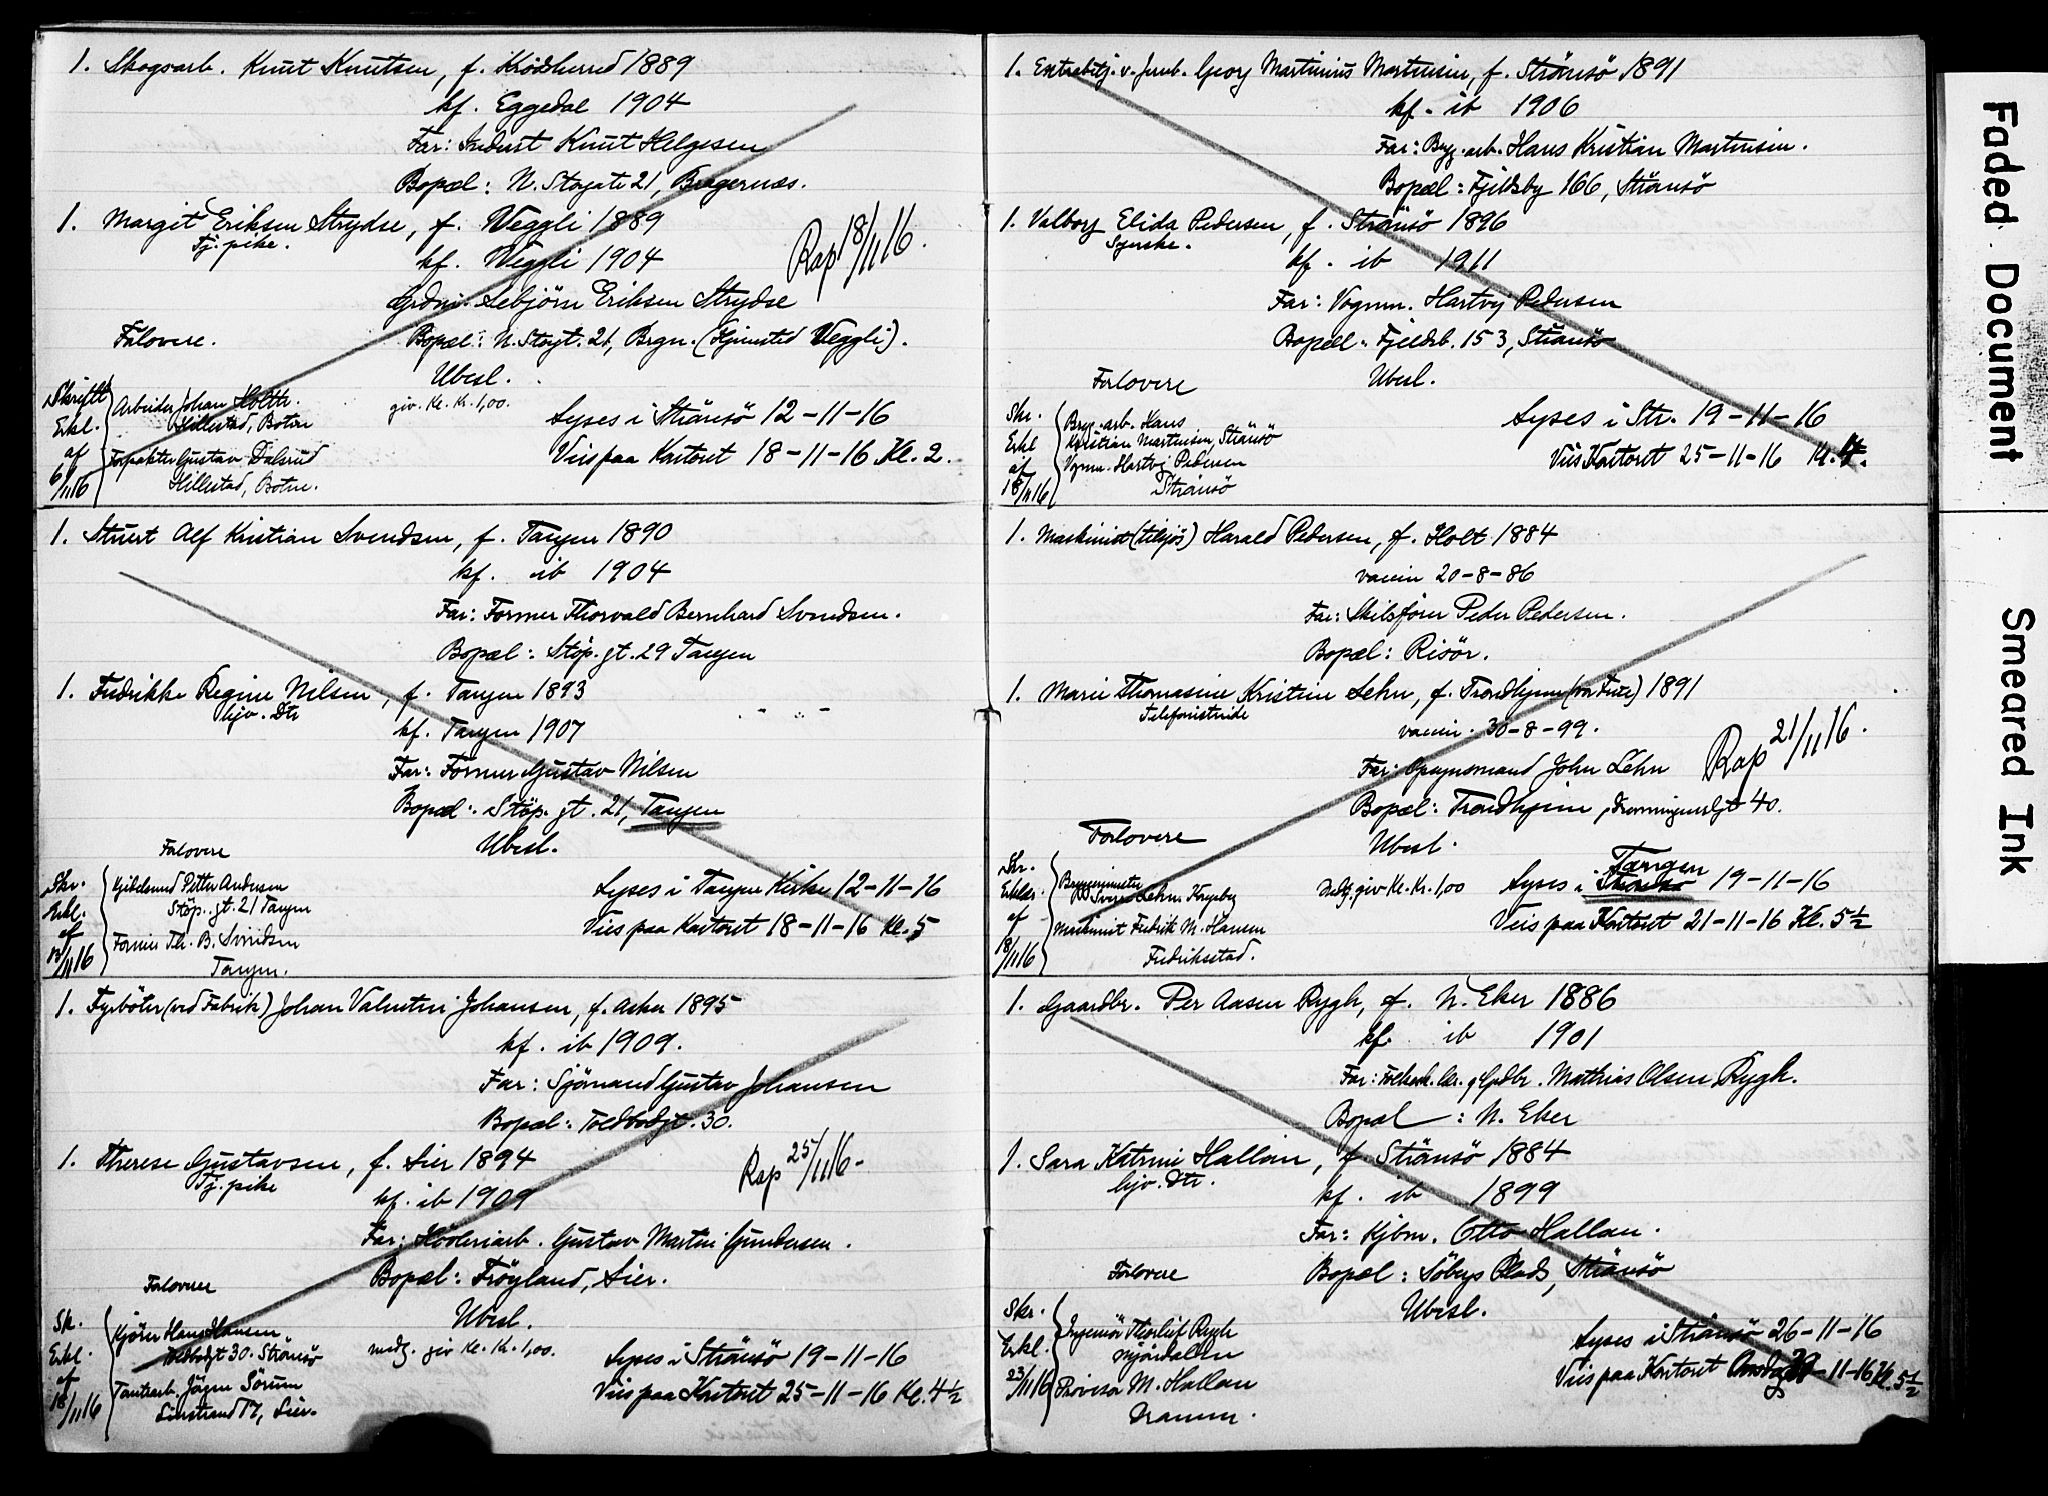 1. Skogsarb. Knut Knutsen, f. Krödsherred 1889
kf. Eggedal 1904
Far: Inderst Knut Helgesen
Bopæl: N. Storgate 21, Bragernæs.
1. Margit Eriksen Strydse, f. Veggli 1889
Tj. pike.
kf. Veggli 1904
Rap 18/11 16.
Grdm. Sebjörn Eriksen Strydse
Forlovere.
Bopæl: N. Storgt. 21, Brgn. (Hjemsted Veggli).
Ubesl.
Skriftl. Erkl. af 6/11 16
Arbeider Johan Holth.
Hillestad, Botne
Forpakter Gustav Dalsrud
Hillestad, Botne.
giv. Kl. Kr. 1,00.
Lyses i Strömsö 12-11-16
Vies paa Kontoret 18-11-16 Kl. 2.
1. Stuert Alf Kristian Svendsen, f. Tangen 1890
kf. ib 1904
Far: Former Thorvald Bernhard Svendsen.
Bopæl: Stöp. gt. 29 Tangen
1. Fredrikke Regine Nilsen, f. Tangen 1893
hjv. Dtr
kf. Tangen 1907
Far: Former Gustav Nilsen
Bopæl: Stöp. gt. 21, Tangen
Forlovere
Ubesl.
Skr. Erkl. af 13/11 16
Kjedelsmed Petter Andersen
Stöp. gt. 21 Tangen
Former Th. B. Svendsen
Tangen.
Lyses i Tangen Kirke 12-11-16
Vies paa Kontoret 18-11-16 Kl. 5
1. Fyrböter (ved Fabrik) Johan Valentin Johansen, f. Asker 1895
kf. ib 1909.
Far: Sjömand Gustav Johansen
Bopæl: Toldbodgt. 30.
1. Therese Gustavsen, f. Lier 1894
Tj. pike
Rap 25/11 16-
kf. ib 1909
Far: Hövleriarb. Gustav Martin Gundersen.
Forlovere
Bopæl: Fröyland, Lier.
Ubesl.
Sk. Erkl. af 18/11 16
Kjörer Hans Hansen
Toldbodgt 30. Strömsö
Tomtearb. Jörgen Sörum
Linstrand 17, Lier.
medg. giv Kl. Kr. 1,00.
Lyses i Strömsö 19-11-16
Vies paa Kontoret 25-11-16 Kl. 4½
1. Extrabetj. v. Jernb. Georg Martinius Martinsen, f. Strömsö 1891
kf. ib 1906
Far: Bryg. arb. Hans Kristian Martinsen.
Bopæl: Fjeldsby 166, Strömsö
1. Valborg Elida Pedersen, f. Strömsö 1896
Syerske.
kf. ib 1911
Far: Vognm. Hartvig Pedersen
Bopæl: Fjeldsb. 153, Strömsö
Forlovere
Ubesl.
Skr. Erkl af 18/11 16
Bryg. arb. Hans
Kristian Martinsen, Strömsö
Vgnm. Hartvig Pedersen
Strömsö
Lyses i Str. 19-11-16
Vies Kontoret 25-11-16 Kl. 4.
1. Maskinist (tilsjös) Harald Pedersen, f. Holt 1884
vaccin 20-8-86
Far: Skibsförer Peder Pedersen.
Bopæl: Risör.
1. Marie Thomasine Kristine Lehn, f. Trondhjem (vor Frue) 1891
Telefonistinde
vaccin. 30-8-99.
Rap 21/11 16.
Far: Opsynsmand John Lehn
Bopæl: Trondhjem, Dronningensgt 40.
Forlovere
Ubesl.
Skr. Erklæ. af 18/11 16
Byggmester
Sverre Lehn Kongsberg
Maskinist Fredrik M. Hansen
Fredriksstad.
Medg. giv Kl. Kr. 1,00
Lyses i Strömsö Tangen 19-11-16
Vies paa Kontoret 21-11-16 Kl. 5½
1. Gaardbr. Per Aasen Rygh, f. N. Eker 1886
kf. ib 1901
Far: Folkesk. lær. og Grdbr. Mathias Olsen Rygh.
Bopæl: N. Eker
1. Sara Katrine Hallan, f. Strömsö 1884
hjv. Dtr.
kf. ib 1899
Far: Kjbm. Otto Hallan.
Forlovere
Bopæl: Söbergs Plads, Strömsö
Ubesl.
Skr. Erkl. 23/11 16
Ingeniör Thorleif Rygh
Mjöndalen
Provisor M. Hallan
Dramm.
Lyses i Strömsö 26-11-16
Vies paa Kontoret Onsdag 29-11-16 Kl. 5½
Faded Document
Smeared Ink